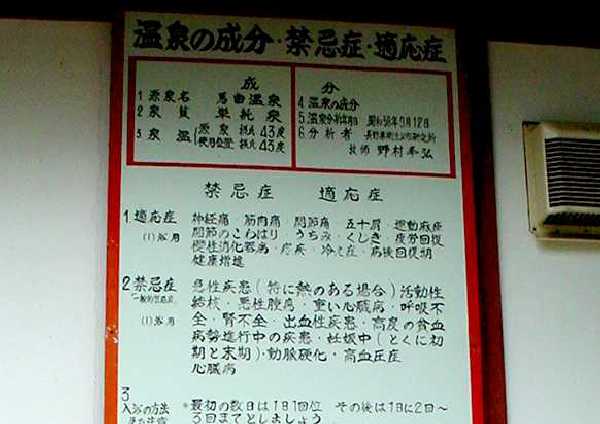 温泉の成分・禁忌症・適応症
成分
1 源泉名 馬曲温泉
2 泉質 単純泉
3 泉温 源泉 摂氏43度
使用位置 摂氏43度
4 温泉の成分
5 温泉分析年月日
6 分析者
技師 野村
禁忌症 適応症
1 適応症 神経痛・筋肉痛 関節痛 五十肩 運動麻痺
(1)浴用 関節のこわばり うちみ・くじき 疲労回復
慢性消化器病・痔疾・冷え症・病後回復期
健康増進
2 禁忌症 急性疾患(特に熱のある場合)活動性
結核・悪性腫瘍・重い心臓病・呼吸不
(1)浴用 全・腎不全・出血性疾患・高度の貧血
病勢進行中の疾患・妊娠中(とくに初
期と末期)・動脈硬化・高血圧症
心臓病
3
入浴の方法 *最初の数日は1日1回位 その後は1日に2回〜
3回までとしましょう